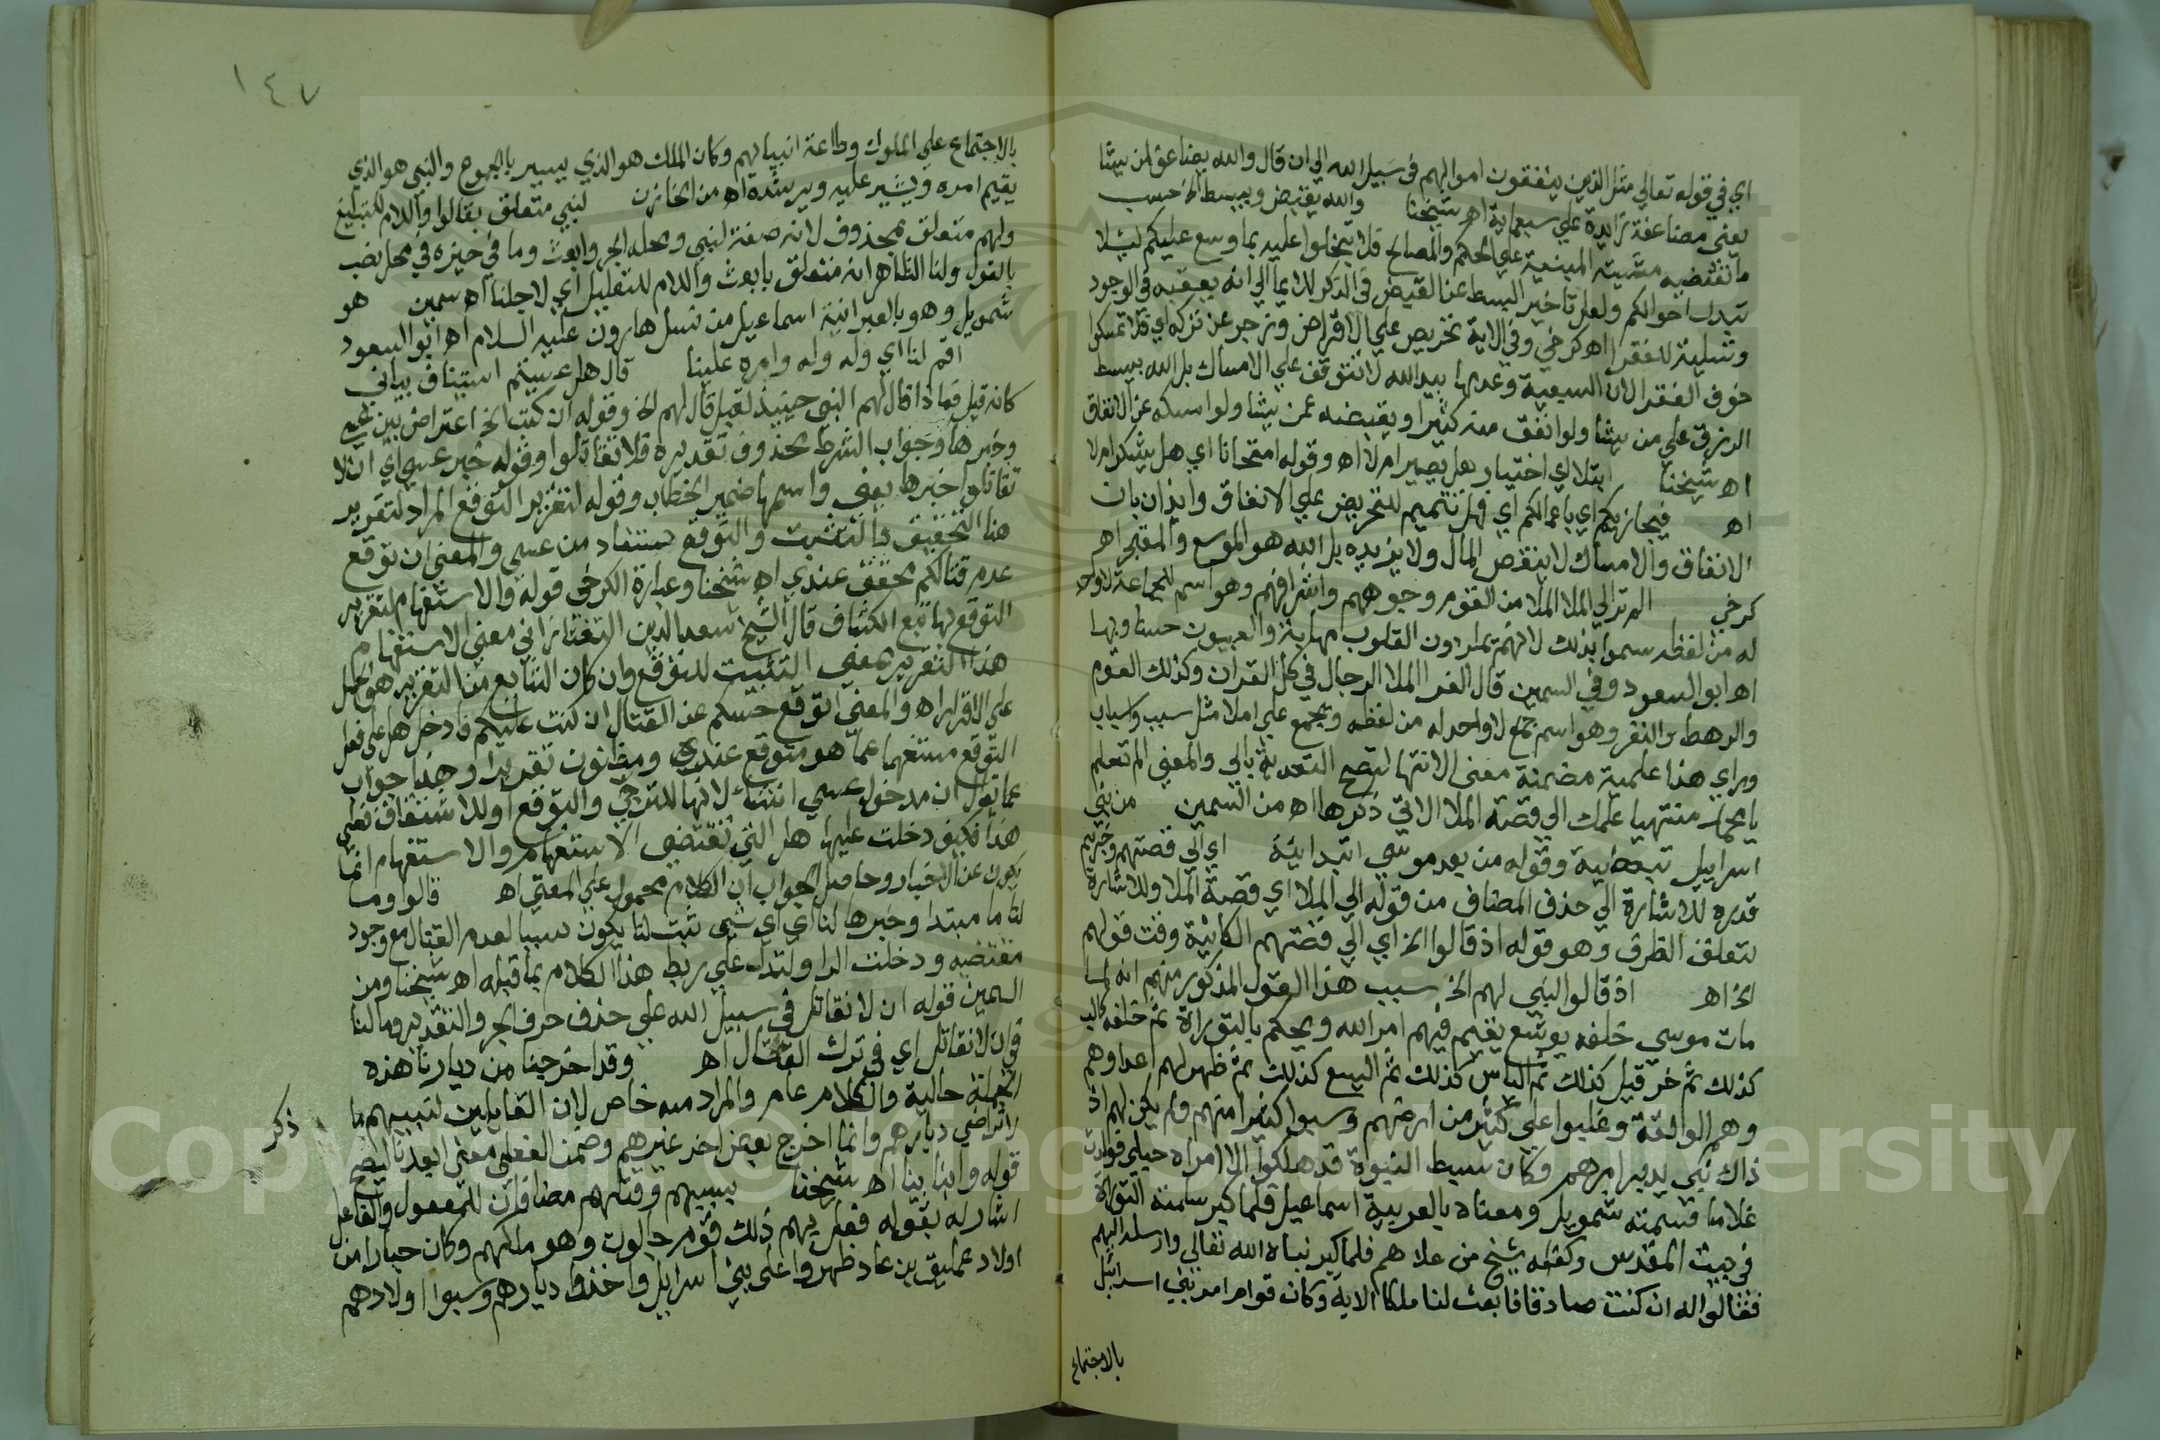 اي في قوله تعالي مثل الذين ينفقون اموالهم في سبيل الله الي ان قال والله يضاعف لمن يشا
يعني مضاعفة زايدة علي سبعماية اه شيخنا والله يقبض ويبسط الخ حسب
ما تقتضيه مشيته المبنية علي الحكم والمصالح فلا تبخلوا عليه بما وسع عليكم ليلا
تتبدل احوالكم ولعل تاخير البسط عن القبض في الذكر للايما الي انه يعقبه في الوجود
وتسلية للفقرا اه كرخي وفي الاية تحريض علي الاقراض وزجر عن تركه اي فلا تمسكوا
خوف الفقر لان السعة وعدمها بيد الله لا تتوقف علي الامساك بل الله يبسط
الرزق علي من يشا ولو انفق منه كثيرا ويقبضه عمن يشا ولو امسكه عن الانفاق
اه شيخنا ابتلا اي اختبار هل يصبر ام لا اه وقوله امتحانا اي هل يشكر ام لا
اه فيجازيكم اي باعمالكم اي فهل تتميم للتحريض علي الانفاق وايذان بان
الانفاق والامساك لا ينقص المال ولا يزيده بل الله هو الموسع والمقتر اه
كرخي الم تر الي الملا الملا من القوم وجوههم واشرافهم وهو اسم للجماعة لا واحد
له من لفظه سموا بذلك لانهم يملاون القلوب مهابة والعيون حسنا وبها
اه ابو السعود وفي السمين قال الفرا الملا الرجال في كل القران وكذلك القوم
والرهط والنفر وهو اسم جمع لا واحد له من لفظه ويجمع علي املا مثل سبب واسباب
وراي هذا علمية مضمنة معني الانتها ليصح التعدية بالي والمعني الم تعلم
يا محمد منتهيا علمك الي قصة الملا الاتي ذكرها اه من السمين من بني
اسرايل تبعيضية وقوله من بعد موسي ابتدائية اي الي قصتهم وخبرهم
قدره للاشارة الي حذف المضاف من قوله الي الملا اي قصة الملا وللاشارة
لتعلق الظرف وهو قوله اذ قالوا الخ اي الي قصتهم الكائنة وقت قولهم
الخ اه اذ قالوا لنبي لهم الخ سبب هذا القول المذكور منهم انه لما
مات موسي خلفه يوشع يقيم فيهم امر الله ويحكم بالتوراة ثم خلفه كالب
كذلك ثم حزقيل كذلك ثم الياس كذلك ثم اليسع كذلك ثم ظهر لهم اعداوهم
وهم العمالقة وغلبوا علي كثير من ارضهم وسبوا كثيرا منهم ولم يكن لهم اذ
ذاك نبي يدبر امرهم وكان سبط النبوة قد هلكوا الا امراة حبلي فولدت
غلاما فسمته شمويل ومعناه بالعربية اسماعيل فلما كبر سلمته التوراة
في بيت المقدس وكفله شيخ من علماهم فلما كبر نباه الله تعالي وارسله اليهم
فقالوا له ان كنت صادقا فابعث لنا ملكا الاية وكان قوام امر بني اسرائيل
بالاجتماع
١٤٧
بالاجتماع علي الملوك وطاعة انبيايهم وكان الملك هو الذي يسير بالجموع والنبي هو الذي
يقيم امره ويشير عليه ويرشده اه من الخازن لنبي متعلق بقالوا واللام للتبليغ
ولهم متعلق بمحذوف لانه صفة لنبي ومحله الجر وابعث وما في حيزه في محل نصب
بالقول ولنا الظاهر انه متعلق بابعث واللام للتعليل اي لاجلنا اه سمين هو
شمويل وهو بالعبرانية اسماعيل من نسل هارون عليه السلام اه ابو السعود
اقم لنا اي وله وله وامره علينا قال هل عسيتم استيناف بياني
كانه قيل فماذا قال لهم النبي حينيذ فقيل قال لهم الخ وقوله ان كتب الخ اعتراض بين عسي
وخبرها وجواب الشرط محذوف تقديره فلا تقاتلوا وقوله خبر عسي اي ان لا
تقاتلوا خبرها يعني واسمها ضمير الخطاب وقوله لتقرير التوقع المراد لتقرير
هنا التحقيق والتثبت والتوقع مستفاد من عسي والمعني ان توقع
عدم قتالكم محقق عندي اه شيخنا وعبارة الكرخي قوله والاستفهام لتقرير
التوقع لها تبع الكشاف قال الشيخ سعد الدين التفتازاني معني الاستفهام
هنا التقرير بمعني التثبيت للتوقع وان كان الشايع من التقرير هو الحمل
علي الاقرار اه والمعني اتوقع جبنكم عن القتال ان كتب عليكم فادخل هل علي فعل
التوقع مستفهما عما هو متوقع عنده ومظنون تقديرا وهذا جواب
عما يقال ان مدخول عسي انشاء لانها للترجي والتوقع اوللاشفاق فعلي
هذا فكيف دخلت عليها هل التي تقتضي الاستفهام والاستفهام انما
يكون عن الاخبار وحاصل الجواب ان الكلام محمول علي المعني اه قالوا وما
لنا ما مبتدا وخبرها لنا اي اي شي ثبت لنا يكون سببا لعدم القتال مع وجود
مقتضيه ودخلت الواو لتدل علي ربط هذا الكلام بما قبله اه شيخنا ومن
السمين قوله ان لا نقاتل في سبيل الله علي حذف حرف الجر والتقدير وما لنا
في ان لا نقاتل اي في ترك القتال اه وقد اخرجنا من ديارنا هذه
الجملة حالية والكلام عام والمراد منه خاص لان القايلين لنبيهم ما ذكر
اراضي ديارهم وانما اخرج بعض اخر غيرهم وضمن الفعل معني ابعدنا ليصح
قوله وابنائنا اه شيخنا بسبيهم وقتلهم مضافان للمفعول والفاعل
اشار له بقوله فعل بهم ذلك قوم جالوت وهو ملكهم وكان جبارا من
اولاد عمليق بن عاد ظهروا علي بني اسرايل واخذوا ديارهم وسبوا اولادهم
Copyright © King Saud University